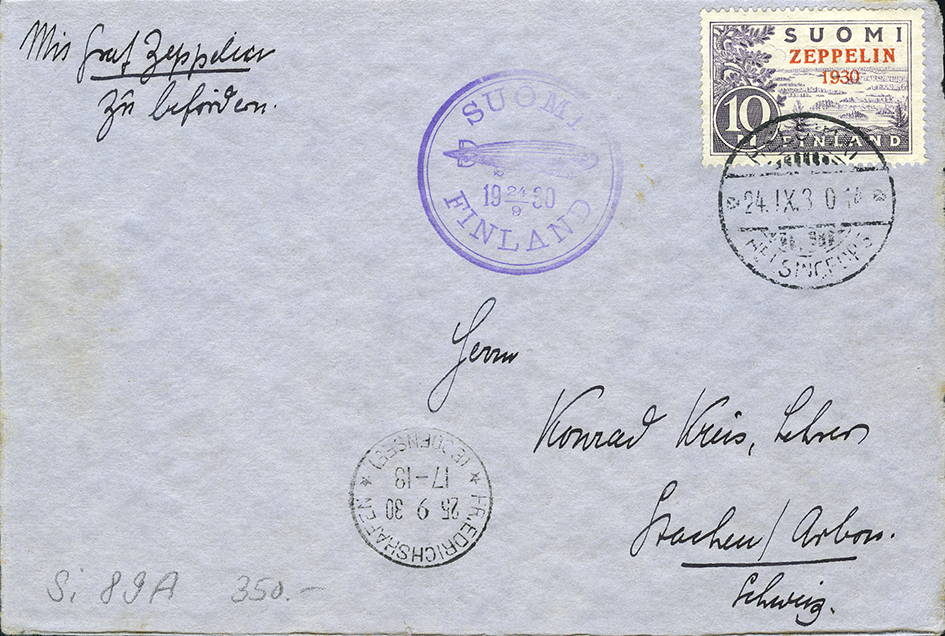 Mit Graf Zeppelin
zu befördern.
SUOMI
ZEPPELIN
1930
10 M
FINLAND
SUOMI
19 24/9 30
FINLAND
24.IX.30 14
HELSINGFORS
Herrn
Konrad Kreis, Lehrer
Stachen / Arbon.
Schweiz.
FRIEDRICHSHAFEN
25 9 30
17-18
(BODENSEE)
Si 89A 350.-